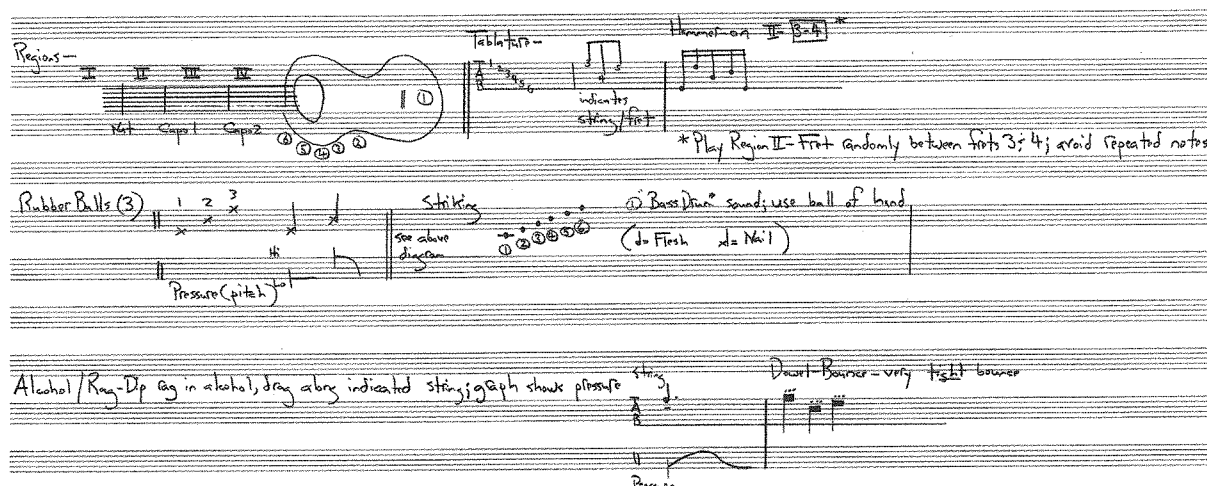 Regions—
I II III IV
Nut Capo1 Capo2
① ② ③ ④ ⑤ ⑥
Tablature—
TAB 1 2 3 4 5 6
indicates
string/fret
Hammer-on II- 3-4 *
* Play Region II- Fret randomly between frets 3 & 4; avoid repeated notes
Rubber Balls (3)
1 2 3
Hi
Pressure (pitch) Lo
Striking
see above
diagram
① ② ③ ④ ⑤ ⑥
① "Bass Drum" sound; use ball of hand
(d= Flesh xd= Nail)
Alcohol/Rag-Dip rag in alcohol, drag along indicated string; graph shows pressure
string
TAB
Pressure
Dowel-Bounce—very tight bounce